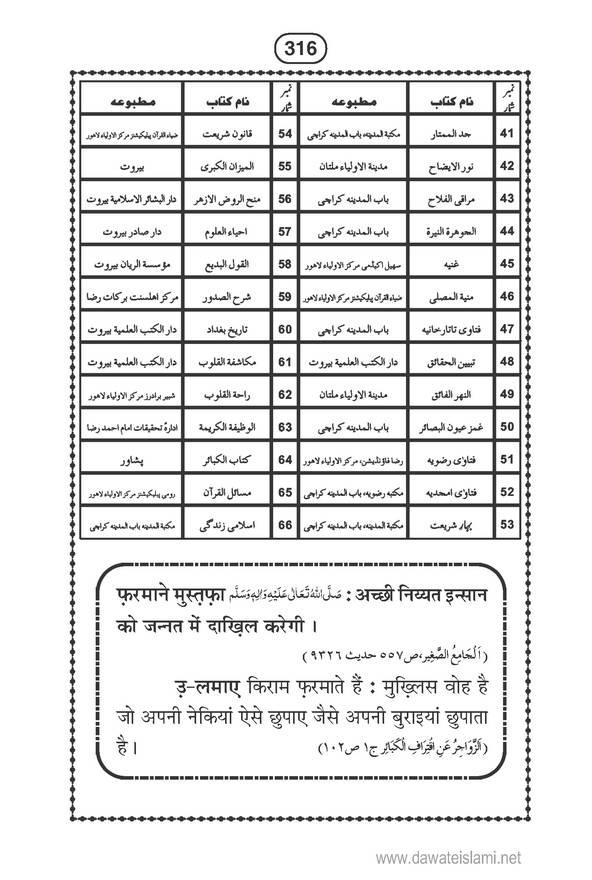 316
نمبر شمار	نام کتاب	مطبوعه	نمبر شمار	نام کتاب	مطبوعه
41	جد الممتار	مکتبة المدینه، باب المدینه کراچی	54	قانون شریعت	ضیاء القرآن پبلیکیشنز مرکز الاولیاء لاهور
42	نور الایضاح	مدینة الاولیاء ملتان	55	المیزان الکبری	بیروت
43	مراقی الفلاح	باب المدینه کراچی	56	منح الروض الازهر	دار البشائر الاسلامیة بیروت
44	الجوهرة النیرة	باب المدینه کراچی	57	احیاء العلوم	دار صادر بیروت
45	غنیه	سهیل اکیڈمی مرکز الاولیاء لاهور	58	القول البدیع	مؤسسة الریان بیروت
46	منیة المصلی	ضیاء القرآن پبلیکیشنز مرکز الاولیاء لاهور	59	شرح الصدور	مرکز اهلسنت برکات رضا
47	فتاوی تاتارخانیه	باب المدینه کراچی	60	تاریخ بغداد	دار الکتب العلمیة بیروت
48	تبیین الحقائق	دار الکتب العلمیة بیروت	61	مکاشفة القلوب	دار الکتب العلمیة بیروت
49	النهر الفائق	مدینة الاولیاء ملتان	62	راحة القلوب	شبیر برادرز مرکز الاولیاء لاهور
50	غمز عیون البصائر	باب المدینه کراچی	63	الوظیفة الکریمة	ادارۂ تحقیقات امام احمد رضا
51	فتاوٰی رضویه	رضا فاؤنڈیشن، مرکز الاولیاء لاهور	64	کتاب الکبائر	پشاور
52	فتاوٰی امجدیه	مکتبه رضویه، باب المدینه کراچی	65	مسائل القرآن	رومی پبلیکیشنز مرکز الاولیاء لاهور
53	بهار شریعت	مکتبة المدینه، باب المدینه کراچی	66	اسلامی زندگی	مکتبة المدینه باب المدینه کراچی
फ़रमाने मुस्त़फ़ा صَلَّى اللهُ تَعَالٰى عَلَيْهِ وَاٰلِهٖ وَسَلَّم : अच्छी निय्यत इन्सान
को जन्नत में दाख़िल करेगी ।
(اَلْجَامِعُ الصَّغِير،ص٥٥٧ حديث ٩٣٢٦)
उ-लमाए किराम फ़रमाते हैं : मुख़्लिस वोह है
जो अपनी नेकियां ऐसे छुपाए जैसे अपनी बुराइयां छुपाता
है । (اَلزَّوَاجِرُ عَنِ اقْتِرَافِ الْكَبَائِر ج١ ص١٠٢)
www.dawateislami.net